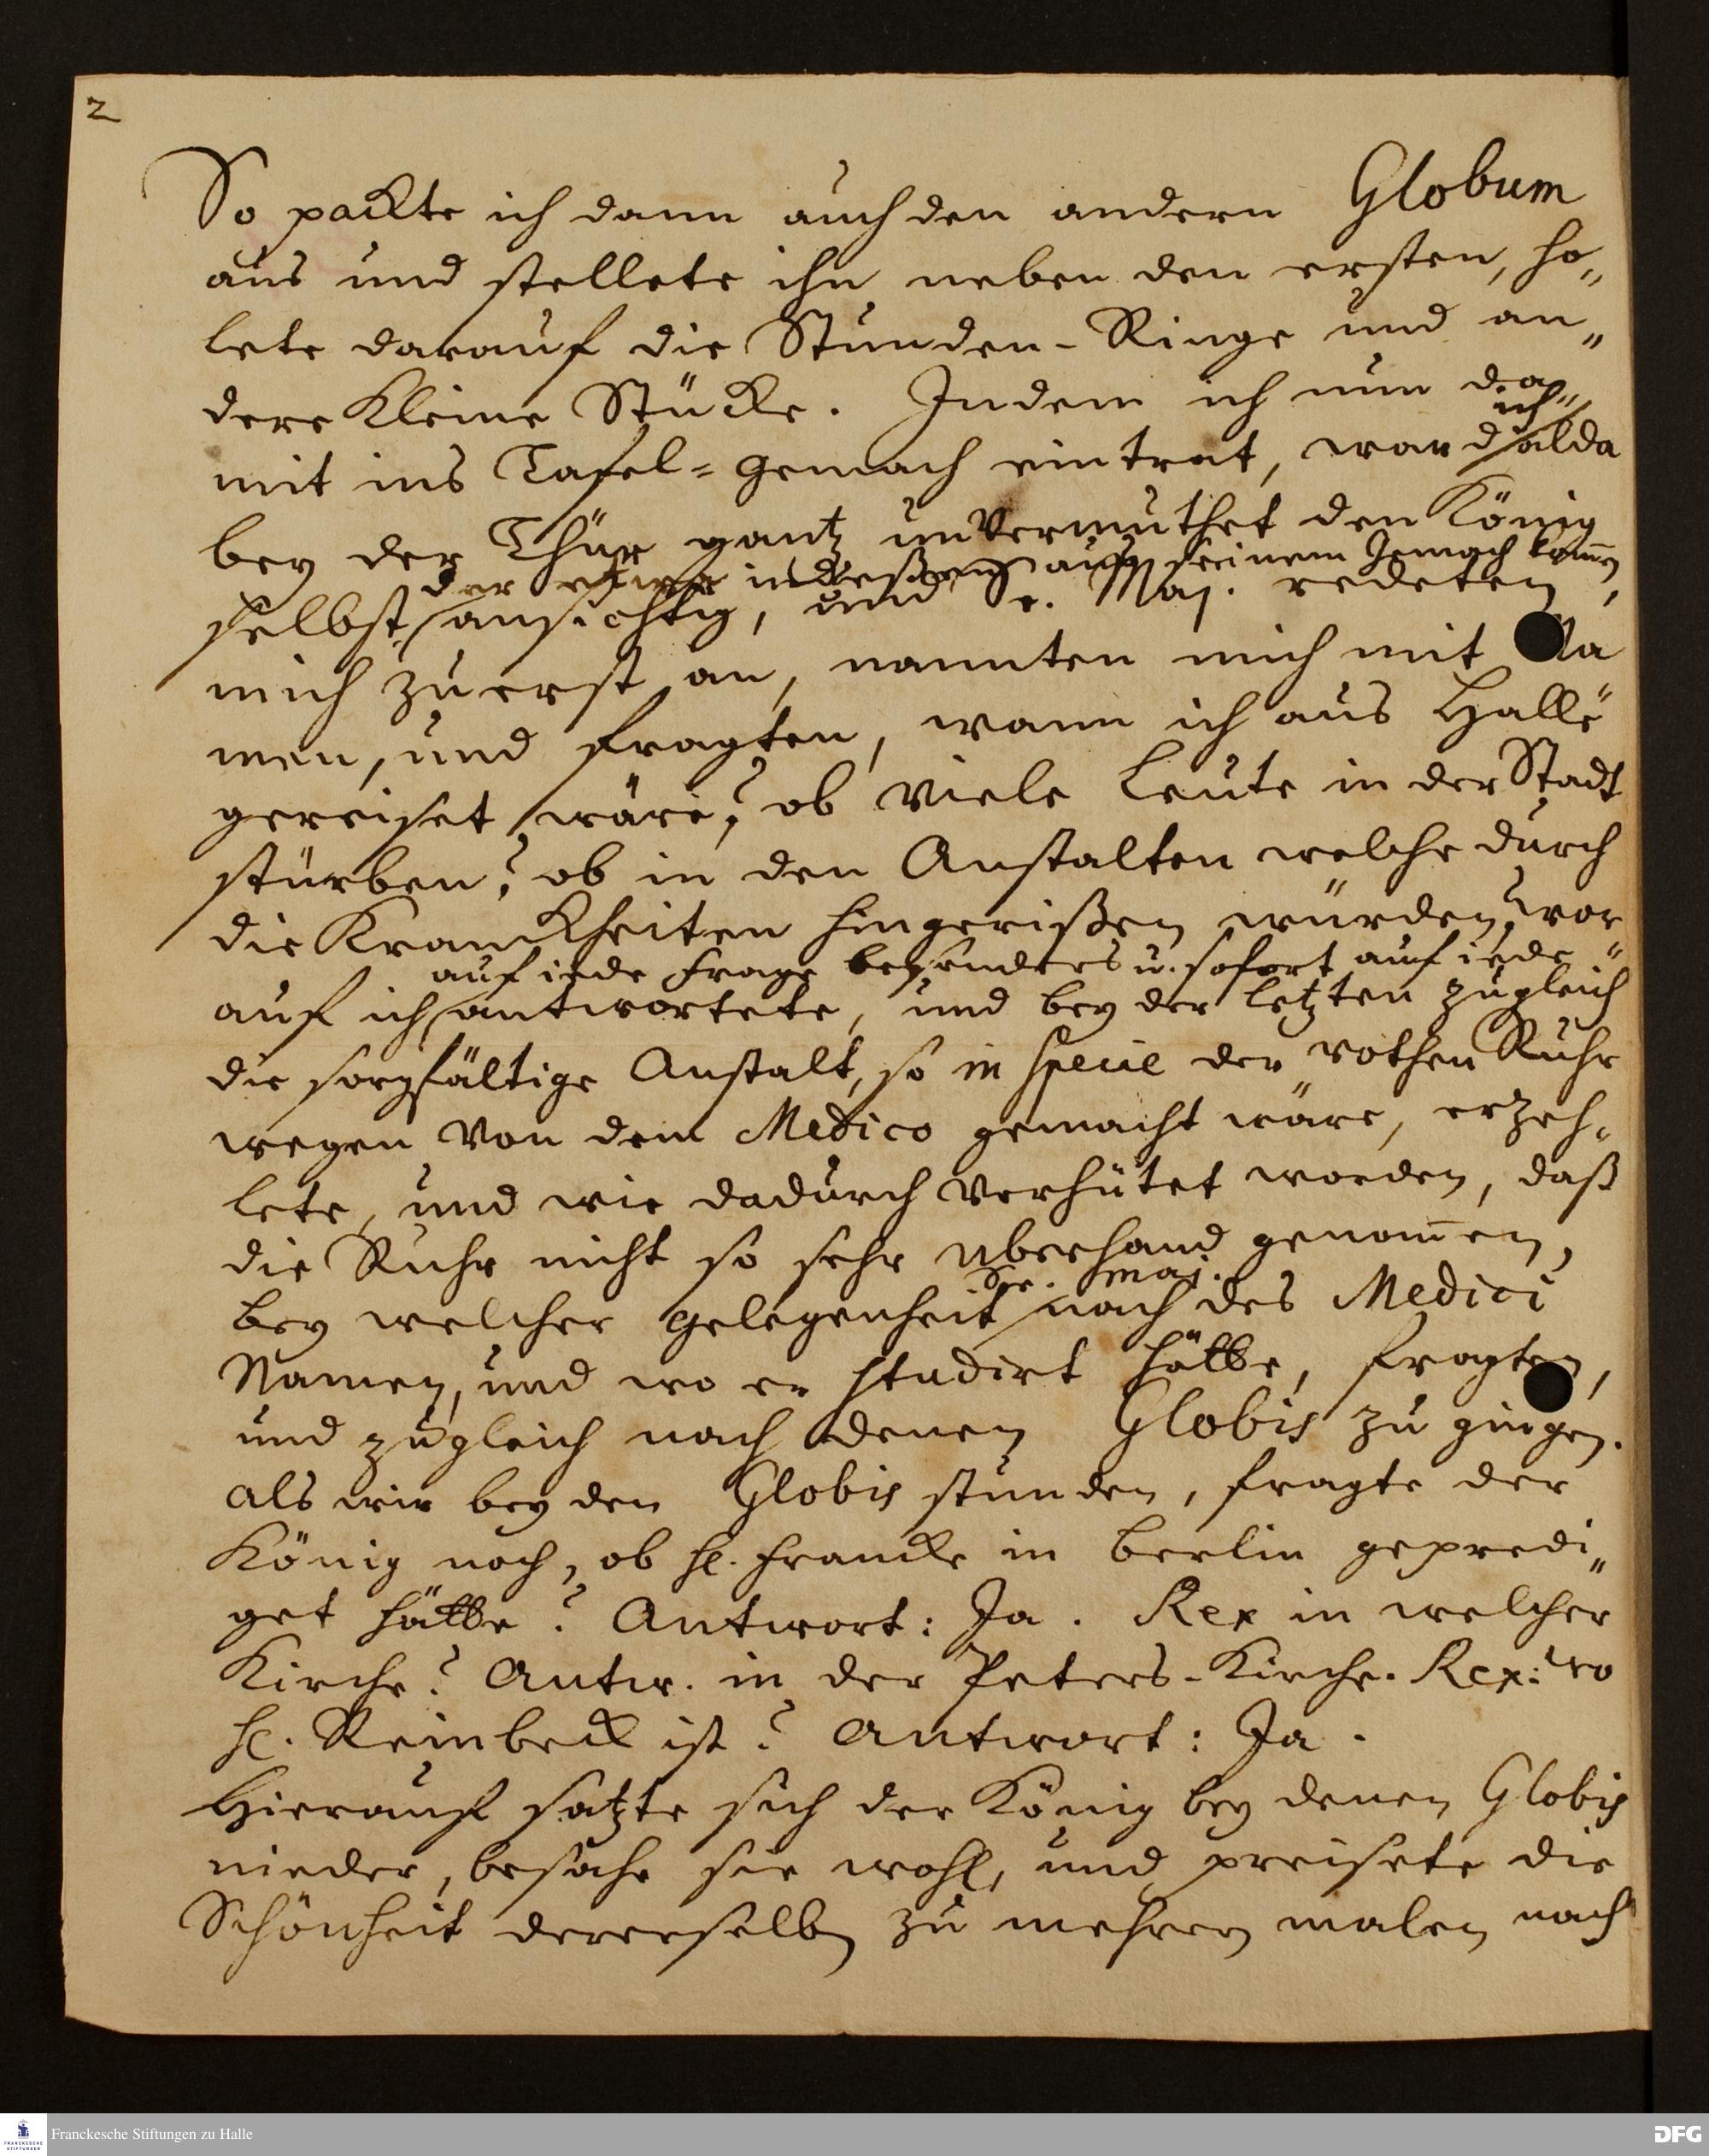 2
So packte ich dann auch den andern Globum
aus und stellete ihn neben den ersten, ho„
lete darauf die Stunden-Ringe und an„
dere kleine Stücke. Indem ich nun da„
ich
mit ins Tafel-gemach eintrat, ward alda
bey der Thür gantz unvermuthet den König
der indeßen aus seinem Gemach kom̅en
selbst ansichtig, und Se. Maj. redeten,
mich zuerst an, nannten mich mit Na
men, und fragten, wann ich aus Halle
gereiset wäre, ob viele Leute in der Stadt
stürben? ob in den Anstalten welche durch
die Kranckheiten hingerißen würden, wor„
auf iede Frage besonders u. sofort auf iede
auf ich antwortete, und bey der letzten zugleich
die sorgfältige Anstalt, so in specie der rothen Ruhr
wegen von dem Medico gemacht wäre, erzeh„
lete, und wie dadurch verhütet worden, daß
die Ruhr nicht so sehr uberhand genom̅en,
Se. Maj.
bey welcher gelegenheit nach des Medici
Namen, und wo er studirt hätte, fragten,
und zugleich nach denen Globis zu gingen.
Als wir bey den Globis stunden, fragte der
König noch, ob H. Francke in Berlin gepredi„
get hätte? Antwort: Ja. Rex in welcher
Kirche? Antw. in der Peters-Kirche. Rex: wo
H. Reinbeck ist? Antwort: Ja.
Hierauf satzte sich der König bey denen Globis
nieder, besahe sie wohl, und preisete die
Schönheit dererselben zu mehren malen nach
Franckesche Stiftungen zu Halle
FRANCKESCHE STIFTUNGEN
DFG